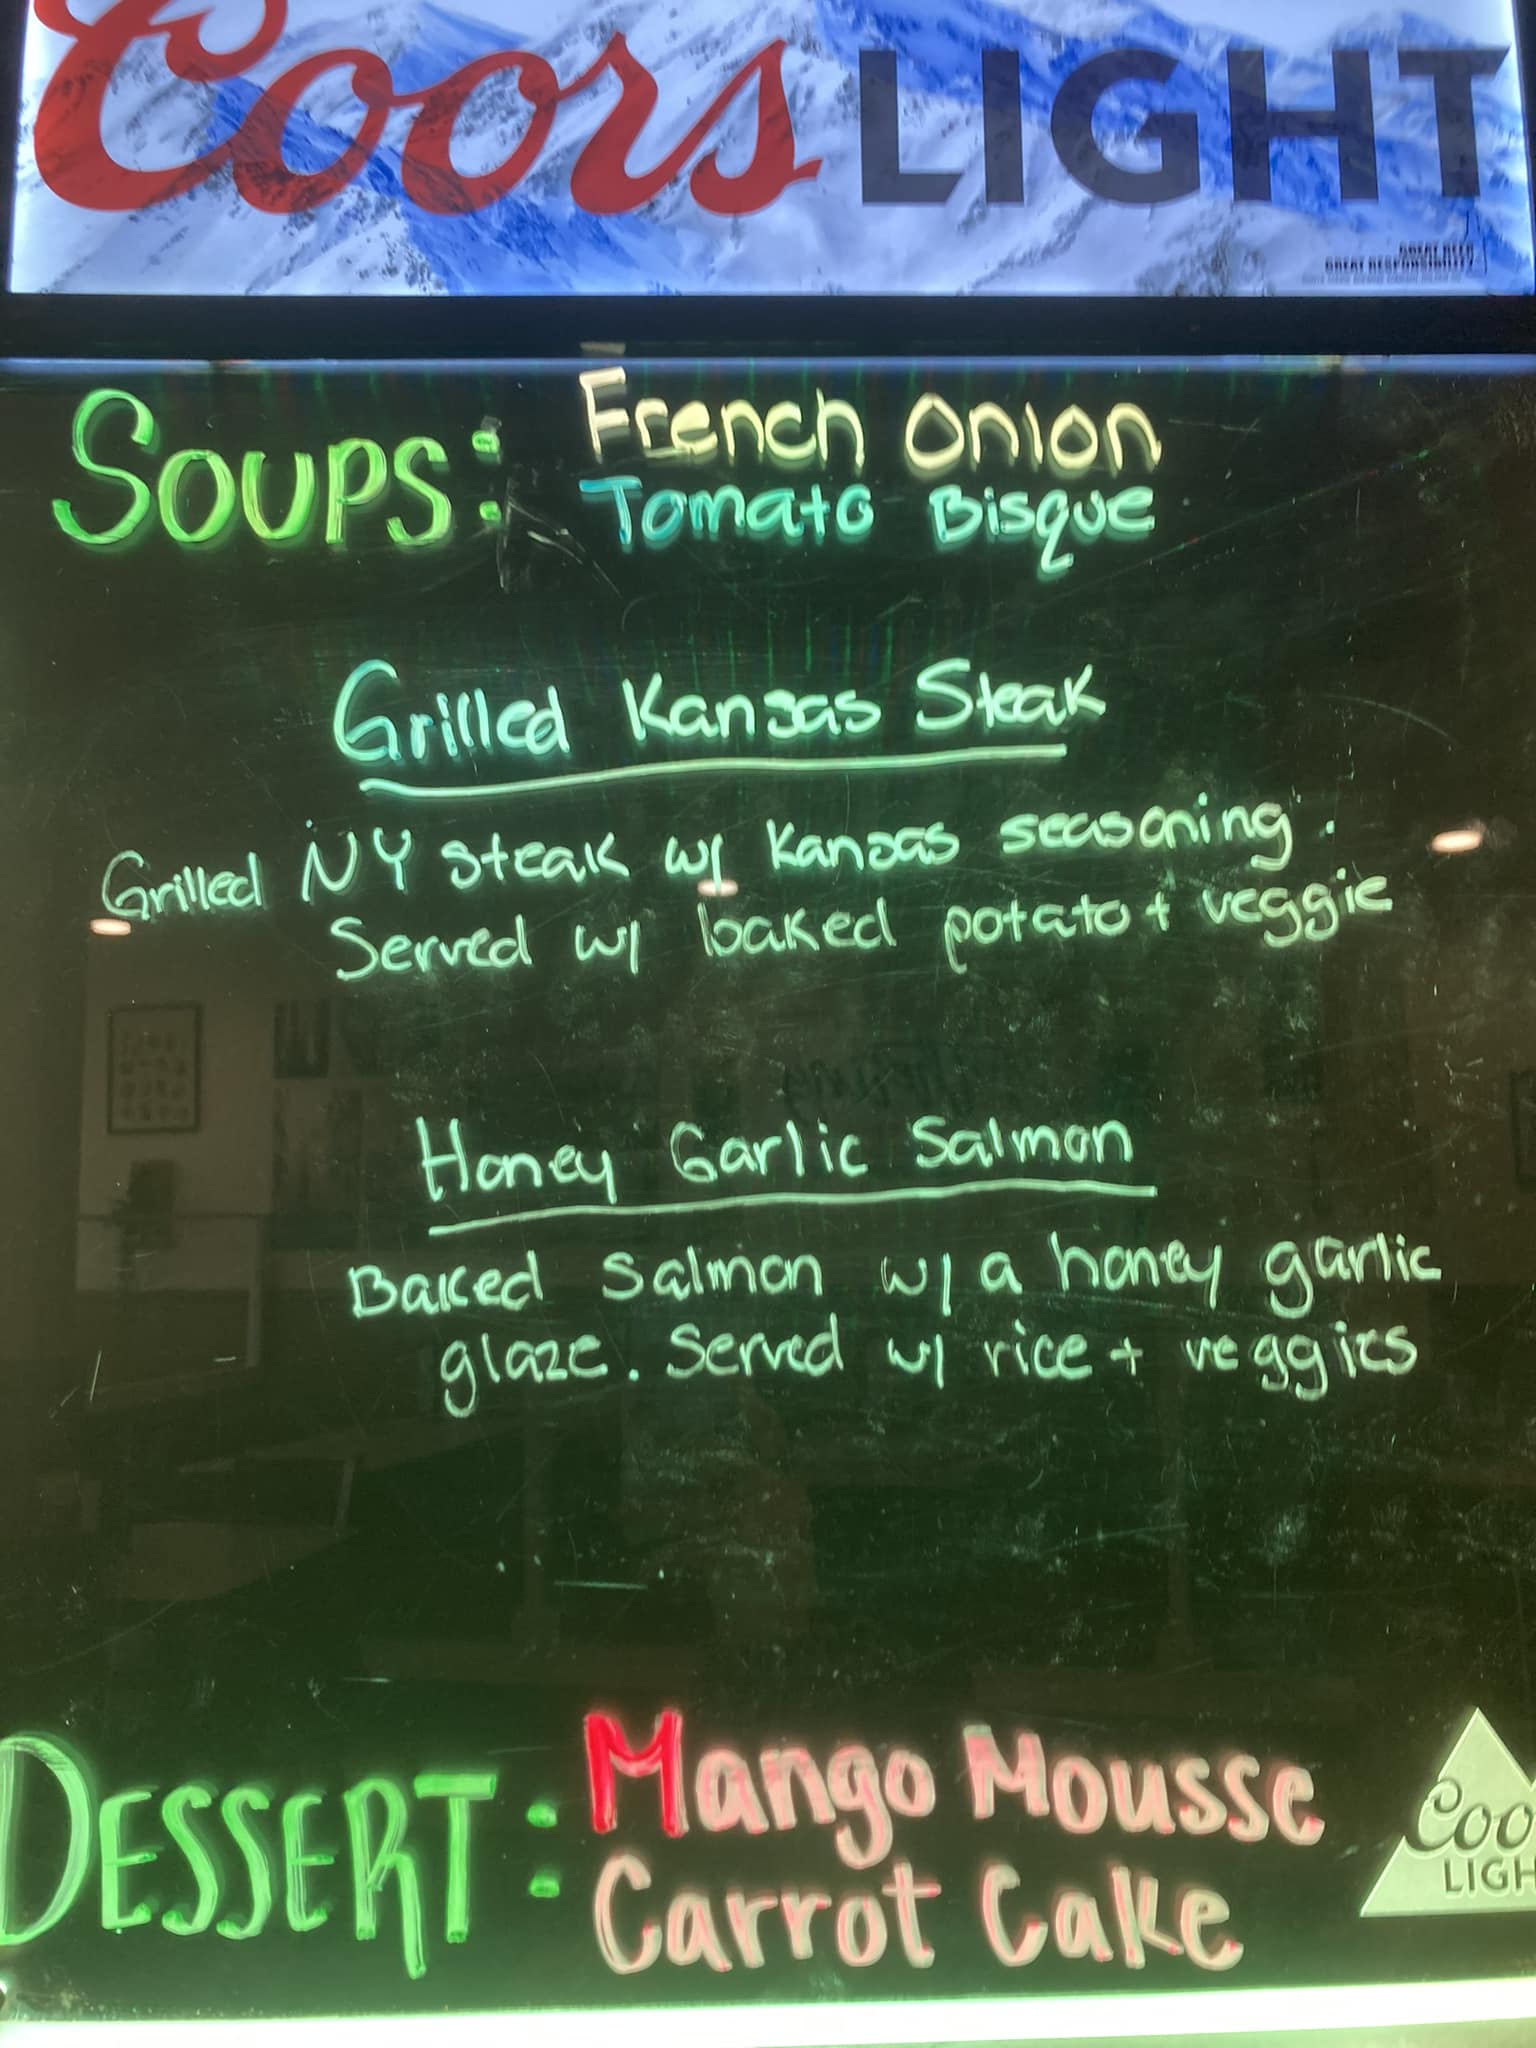 Coors LIGHT
GREAT BEER
GREAT RESPONSIBILITY
SOUPS: French Onion
Tomato Bisque
Grilled Kansas Steak
Grilled NY steak w/ Kansas seasoning.
Served w/ baked potato + veggie
Honey Garlic Salmon
Baked Salmon w/ a honey garlic
glaze. Served w/ rice + veggies
DESSERT: Mango Mousse
Carrot Cake
Coo
LIGH